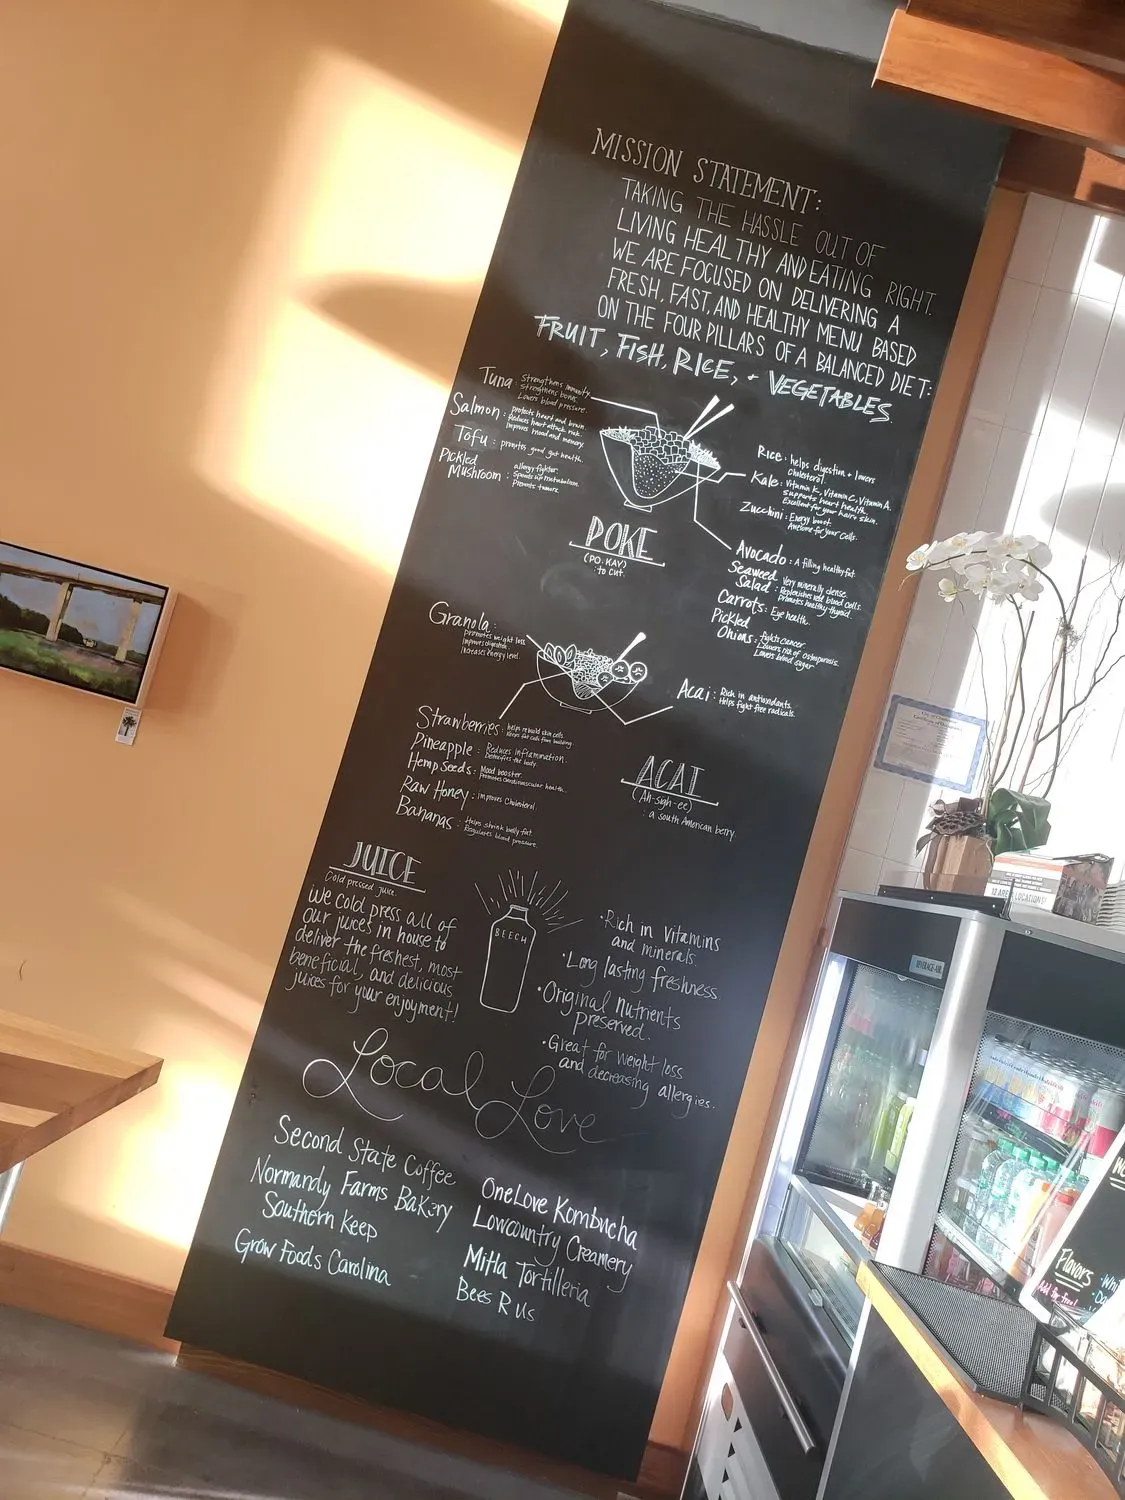 MISSION STATEMENT:
TAKING THE HASSLE OUT OF
LIVING HEALTHY AND EATING RIGHT.
WE ARE FOCUSED ON DELIVERING A
FRESH, FAST, AND HEALTHY MENU BASED
ON THE FOUR PILLARS OF A BALANCED DIET:
FRUIT, FISH, RICE, + VEGETABLES.
Tuna: Strengthens immunity.
Strengthens bones.
Lowers blood pressure.
Salmon: protects heart and brain.
Reduces heart attack risk.
Improves mood and memory.
Tofu: promotes good gut health.
Pickled
Mushroom: allergy fighter.
Speeds up metabolism.
Prevents tumors.
Rice: helps digestion + lowers
cholesterol.
Kale: Vitamin K, Vitamin C, Vitamin A.
Supports heart health.
Excellent for your hair + skin.
Zucchini: Energy boost.
Awesome for your cells.
POKE
(PO-KAY)
: to cut.
Avocado: A filling healthy fat.
Seaweed
Salad: Very minerally dense.
Replenishes red blood cells.
Promotes healthy thyroid.
Carrots: Eye health.
Pickled
Onions: fights cancer.
Lowers risk of osteoporosis.
Lowers blood sugar.
Granola:
promotes weight loss
improves digestion.
Increases energy level.
Acai: Rich in antioxidants.
Helps fight free radicals.
Strawberries: helps rebuild skin cells.
Keeps fat cells from building.
Pineapple: Reduces inflammation.
Detoxifies the body.
Hemp Seeds: Mood booster.
Promotes cardiovascular health.
Raw Honey: improves cholesterol.
Bananas: Helps shrink belly fat.
Regulates blood pressure.
ACAI
(Ah-sigh-ee)
: a South American berry.
JUICE
Cold pressed juice.
we cold press all of
our juices in house to
deliver the freshest, most
beneficial, and delicious
juices for your enjoyment!
BEECH
•Rich in vitamins
and minerals.
•Long lasting freshness.
•Original nutrients
preserved.
•Great for weight loss
and decreasing allergies.
Local Love
Second State Coffee
Normandy Farms Bakery
Southern Keep
Grow Foods Carolina
OneLove Kombucha
Lowcountry Creamery
Mitla Tortilleria
Bees R Us
BEVERAGE-AIR
LOCATIONS!
Flavors